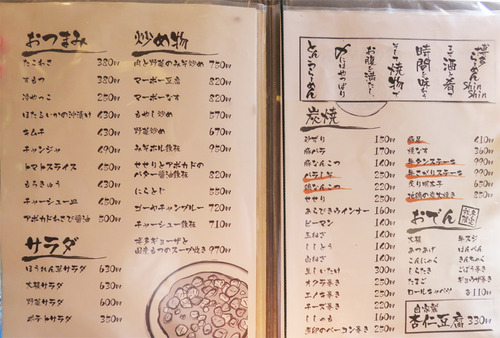 おつまみ
たこわさ 380円
すもつ 380円
冷やっこ 250円
ほたるいかの沖漬け 430円
キムチ 430円
チャンジャ 490円
トマトスライス 450円
もろきゅう 430円
チャーシュー皿 450円
アボカドわさび醤油 500円
サラダ
ほうれん草サラダ 630円
大根サラダ 630円
野菜サラダ 630円
ポテトサラダ 350円
炒め物
肉と野菜のみそ炒め 750円
マーボー豆腐 820円
マーボーなす 820円
もやし炒め 570円
野菜炒め 670円
みそホル鉄板 950円
せせりとアボカドの
バター醤油鉄板 820円
にらとじ 550円
ゴーヤチャンプルー 720円
チャーシュー鉄板 710円
博多ギョーザと
国産もつのスープ炊き 970円
博多らーめん ShinShin
まで酒と肴で
時間を味わう
そして焼物で
お腹を満たし、
〆にはやっぱり
とんこつらーめん
炭焼
砂ずり 150円
豚バラ 170円
豚なんこつ 160円
ハラミ串
鶏なんこつ
せせり 250円
あらびきウインナー 160円
ピーマン 160円
玉ねぎ 160円
ししとう 160円
白ねぎ 160円
生しいたけ 300円
オクラ巻き 250円
エノキ巻き 250円
チーズ巻き 250円
豚足 410円
焼なす 360円
牛タンステーキ 990円
牛さがりステーキ 990円
炙り明太子 590円
おでん
大根
牛スジ
あつあげ
はんぺん
こんにゃく
きんちゃく
しらたき
ごぼう天
たまご
ギョウザ巻き
ロールキャベツ
各110円
自家製
杏仁豆腐 330円